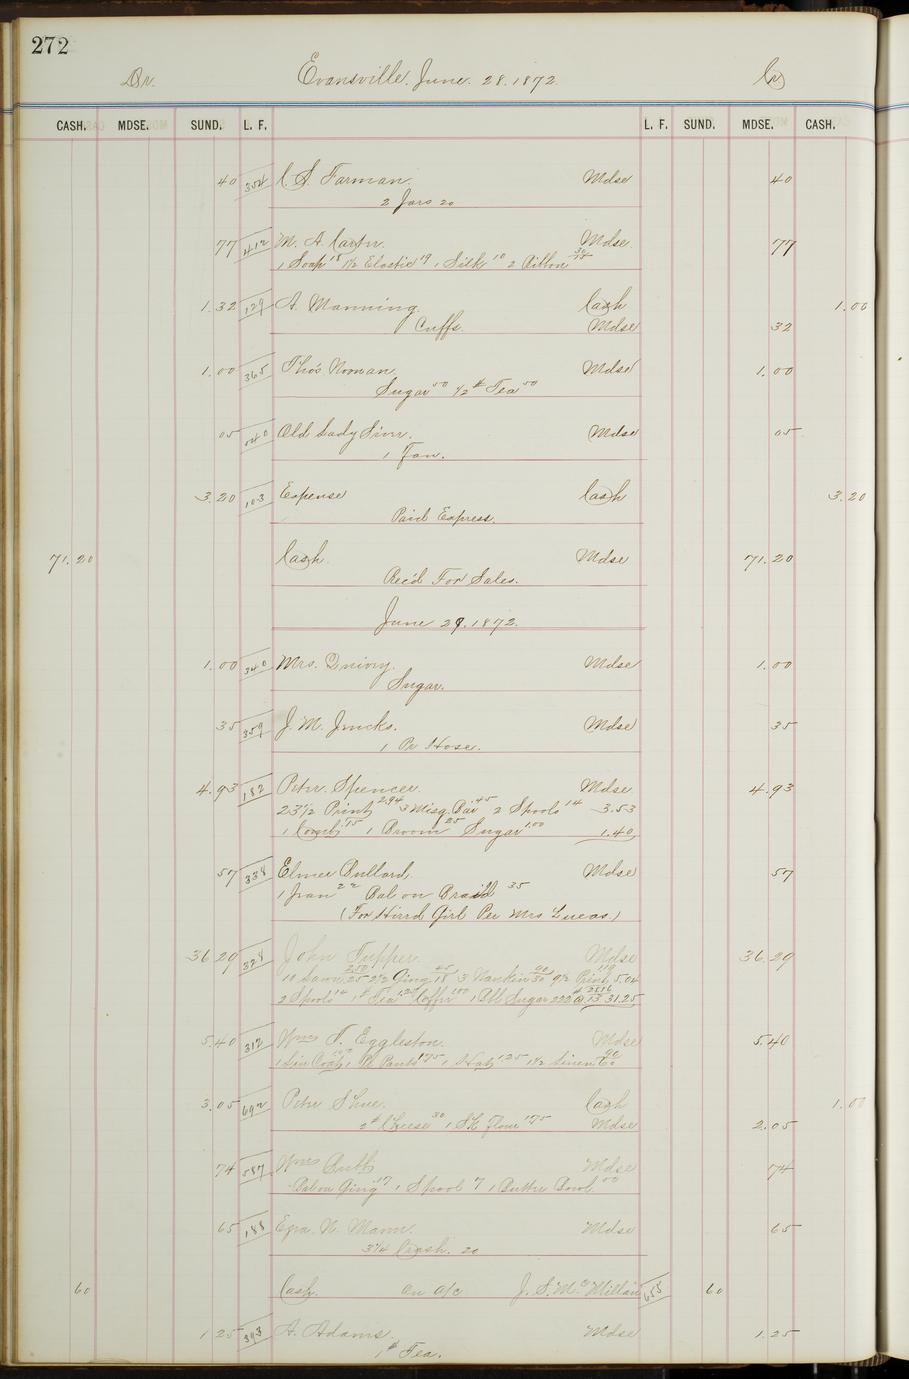 272
Dr. Evansville. June. 28. 1872. Cr
CASH. MDSE. SUND. L. F. L. F. SUND. MDSE. CASH.
40 354 C. S. Farman. Mdse 40
2 Jars 20
77 412 M. A. Carter. Mdse. 77
1 Soap 18 1½ Elastic 19 1 Silk 10 2 Ribbon 30/15
1.32 129 A. Manning. Cash 1.00
Cuffs. Mdse 32
1.00 365 Thos Noonan. Mdse 1.00
Sugar 50 1/2 # Tea 50
05 Old Lady Mdse 05
1 Fan.
3.20 103 Expense Cash 3.20
Paid Express.
71.20 Cash. Mdse 71.20
Rec'd For Sales.
June 29. 1872.
1.00 340 Mrs. Mdse 1.00
Sugar.
35 359 J. M. Mdse 35
1 Pr Hose.
4.93 182 Peter Spencer. Mdse. 4.93
23½ Print 2.94 3 Misq. Bar 45 2 Spools 14 3.53
1 Comb 15 1 Broom 25 Sugar 1.00 1.40
57 338 Elmer Bullard, Mdse 57
1 22 Bal on Braid 35
(For Hird Girl Per Mrs Lucas.)
36.29 328 John Tupper. Mdse 36.29
10 Lawn 250/25 2½ Ging 45/18 3 Nankin 90/30 9½ Print 119 5.04
2 Spools 14 1 # Tea 1.20 Coffee 100 1 Bbl Sugar 222 # @ 13 28.86 31.25
5.40 312 Wm T. Eggleston. Mdse 5.40
1 Lin Coat, 1 Pr Pants 175 1 Hat 1.25 1½ Linen 90/60
3.05 692 Peter Shue. Cash 1.00
2 # Cheese 30 1 Sk Flour 175 Mdse 2.05
74 587 Wm Butts Mdse 74
Bal on Ging 17 1 Spool 7 1 Butter Bowl 50
65 188 Ezra N. Mann. Mdse 65
3¼ Crash. 20
60 Cash. On a/c J. S. McMillan 655 60
1 25 393 A. Adams. Mdse 1.25
1 # Tea.